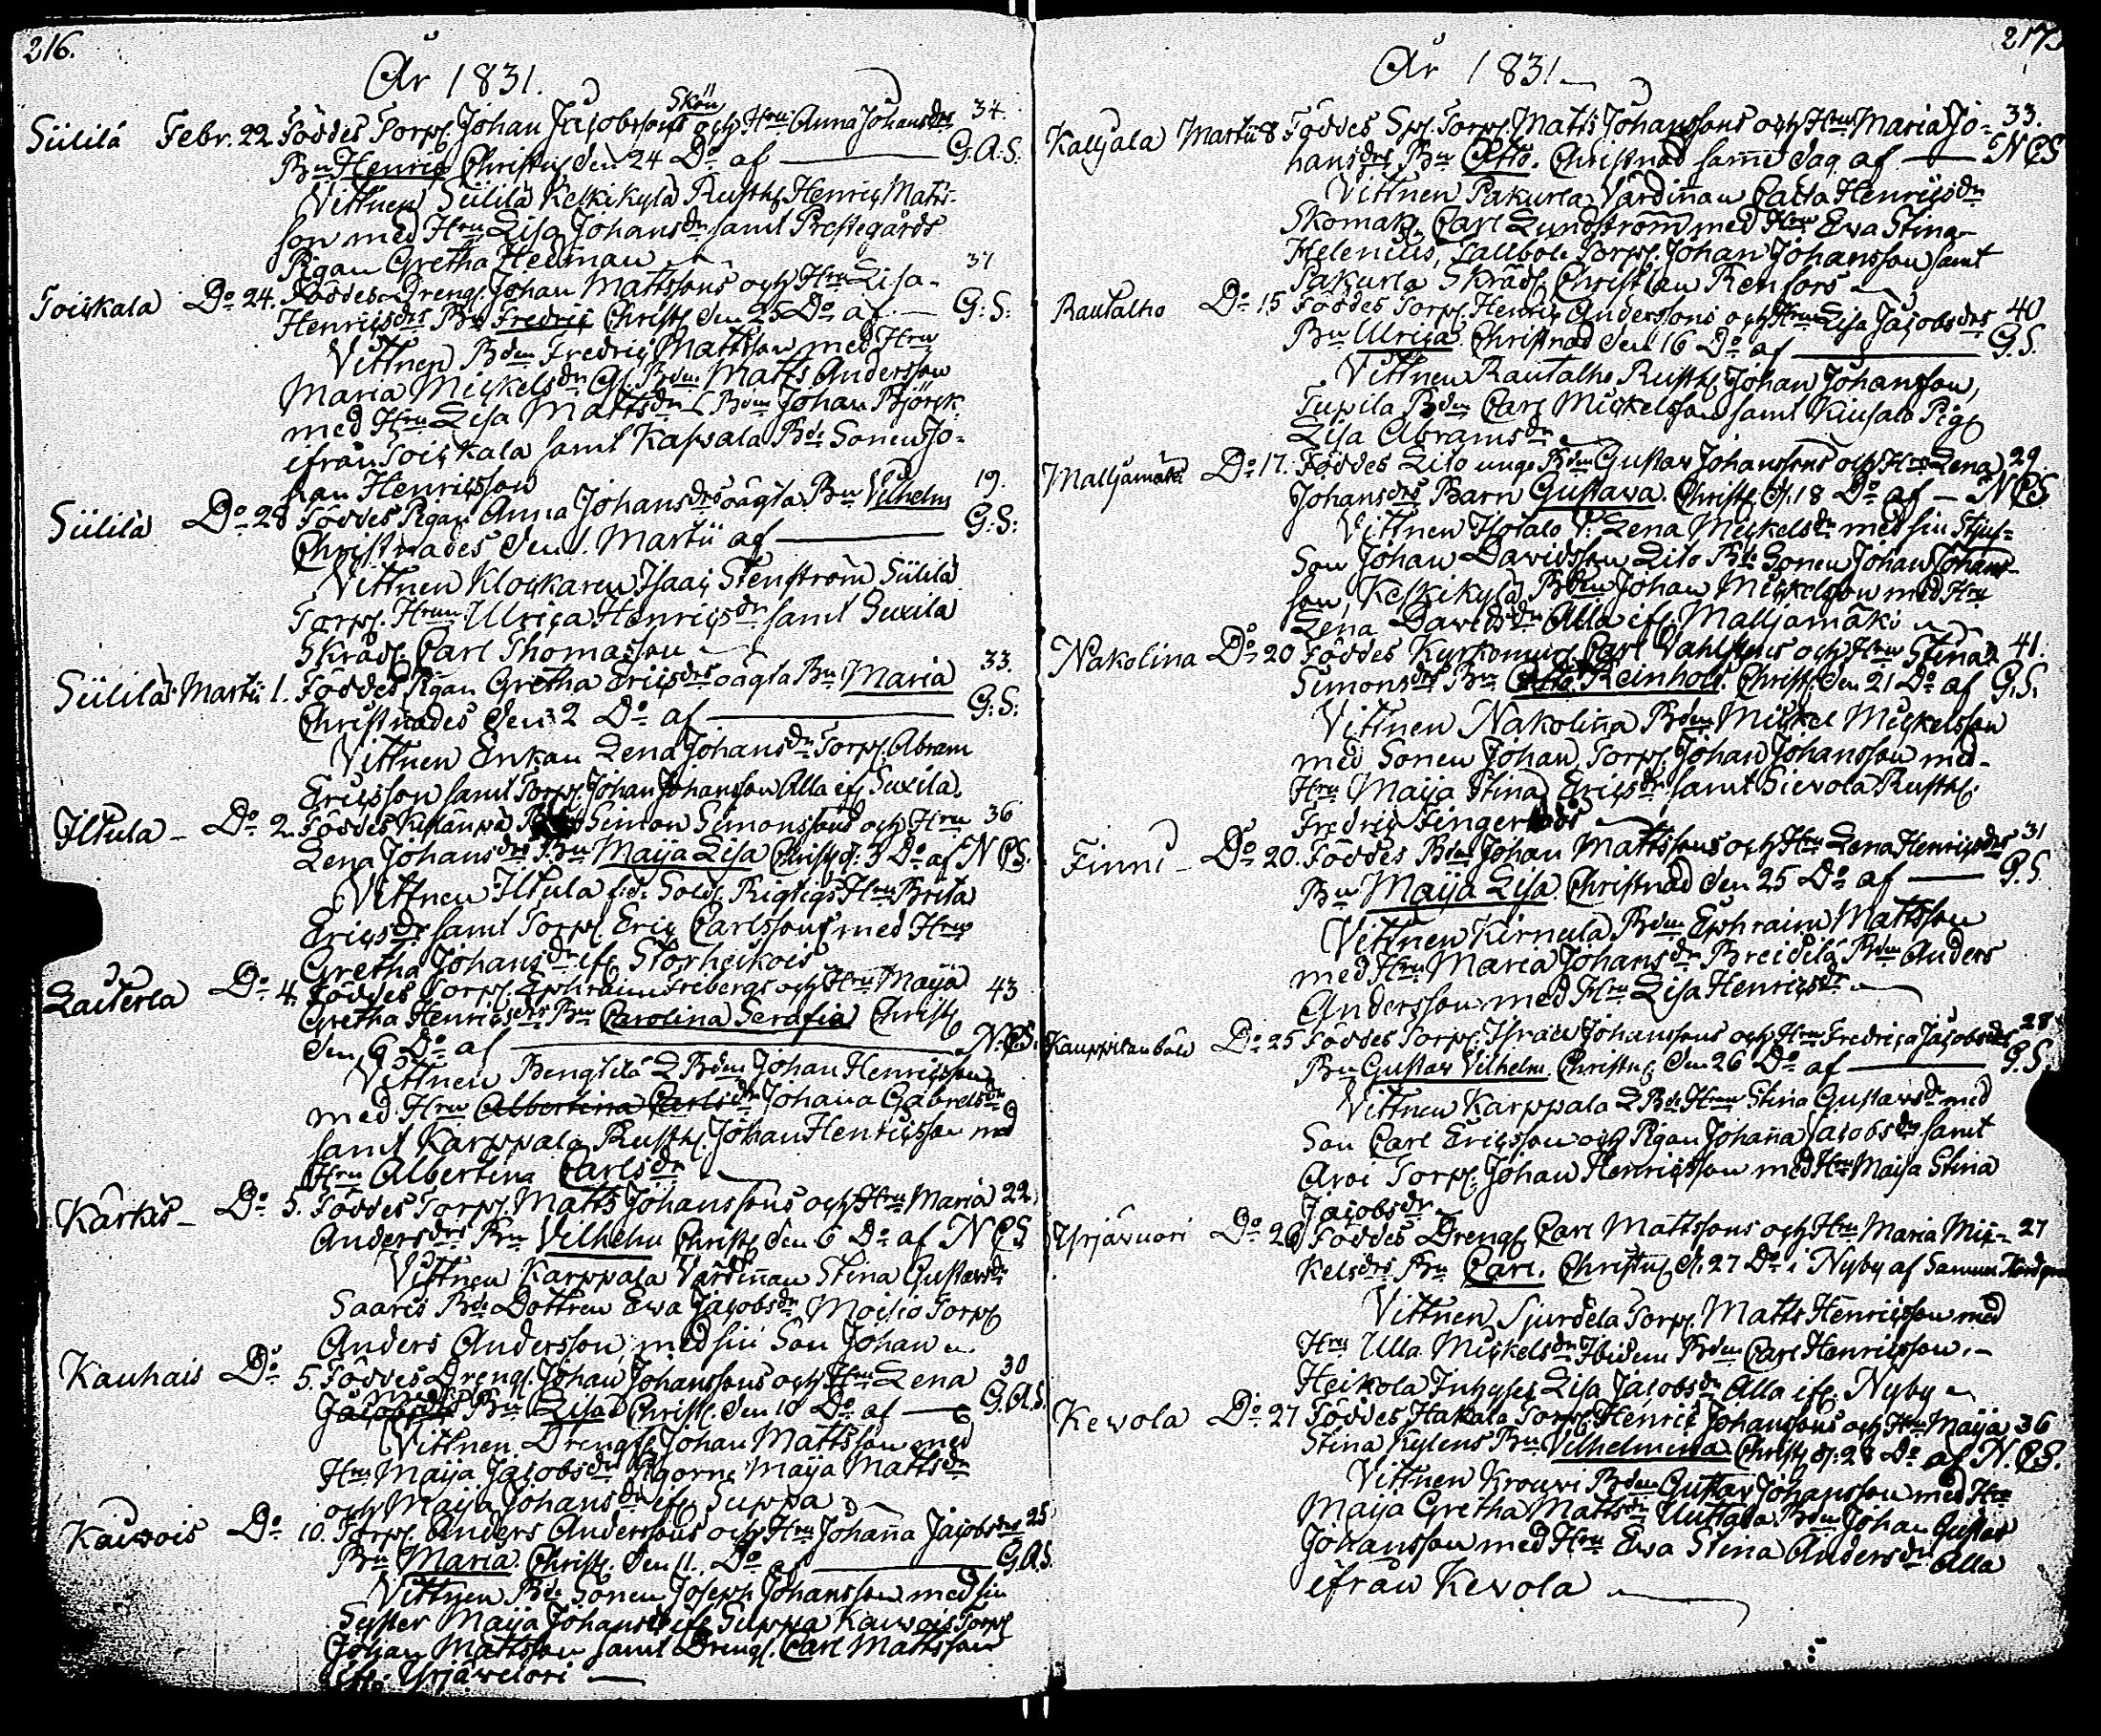 216.
År 1831.
Siililä Febr. 22. Föddes Torp. Johan Jacobssons Skön och Hru Anna Johansdrs 34.
Bn Henric Christn den 24 Do af — G.A.S.
Vittnen Siililä Keskikylä Rusth. Henric Matts-
son med Hru Lisa Johansdr samt Prestegårds
Pigan Gretha Hedman
Toickala Do 24. Föddes Dreng. Johan Mattssons och Hru Lisa 31
Henricsdrs Bn Fredric Christ. den 25 Do af — G:S:
Vittnen Bdn Fredric Mattsson med Hru
Maria Mickelsdr Gl. Bdn. Matts Andersson
med Hru Lisa Mattsdr Bdn Johan Björck
ifrån Toickala samt Kappala Bde Sonen Jo-
han Henricsson
Siililä Do 28 Föddes Pigan Anna Johansdrs oägta Bn Vilhelm 19.
Christnades den 1. Martii af — G:S:
Vittnen Klockaren Isaac Stenström Siililä
Torp. Hrun Ulrica Henricsdr samt Suxila
Skräd. Carl Thomasson
Siililä Martii 1. Föddes Pigan Gretha Ericsdrs oägta Bn Maria 33.
Christnades den 2 Do af — G:S:
Vittnen Enkan Lena Johansdr Torp. Abram
Ericsson samt Torp Johan Johansson Alla if. Suxila.
Iltula Do 2. Föddes Simon Simonssons och Hru 36
Lena Johansdrs Bn Maija Lisa Christ. d. 3 Do af N.C.S.
Vittnen Iltula f.d. Sold. Rigtigs Hru Brita
Ericsdr samt Torp. Eric Carlssons med Hru
Gretha Johansdr if. Storheikois
Laiterla Do 4. Föddes Torp. Ephraim Fribergs och Hru Maija 43
Gretha Henricsdrs Bn Carolina Serafia Christ.
den 6 Do af — N.C.S.
Vittnen Bengtilä Bdn Johan Henricsson
med Hru Albertina Carlsdr Johana Gabrelsdr
samt Karppala Rusth. Johan Henricsson md
Hru Albertina Carlsdr
Kärkis Do 5. Föddes Torp. Matts Johanssons och Hru Maria 22
Andersdrs Bn Vilhelm Christ. den 6 Do af N C S
Vittnen Karppala Värdinnan Stina Gustavsdr
Saaris Bde Dottren Ewa Jacobsdr Moisio Torp.
Anders Andersson med sin Son Johan
Kauhais Do 5. Föddes Dreng. Johan Johanssons och Hru Lena 30
Jacobsdrs Bn Lisa Christ. den 10 Do af — G.A.S.
Vittnen Dreng. Johan Mattsson med
Hru Maija Jacobsdr Pigorne Maija Mattsdr
och Maija Johansdr if. Suppa
Kauvois Do 10. Torp. Anders Anderssons och Hru Johana Jacobsdrs 25
Bn Maria Christ. den 11. Do af — G.A.S.
Vittnen Bde Sonen Joseph Johansson med sin
Syster Maija Johansdr if. Suppa Kauvois Torp.
Johan Mattsson samt Dreng. Carl Mattsson
if. Yrjävuori
217.
År 1831.
Kalljala Martii 8 Föddes Sp. Torp. Matts Johanssons och Hru Maria Jo- 33.
hansdrs Bn Otto. Christnad samme dag af — N C S
Vittnen Pakurla Värdinnan Caisa Henricsdr
Skomak. Carl Lundström med Hru Eva Stina
Helenius, Sallbola Torp. Johan Johansson samt
Pakurla Skräd. Christian Renfors
Rautalho Do 15 Föddes Torp. Henric Anderssons och Hru Lisa Jacobsdrs 40
Bn Ulrica Christnad den 16 Do af — G.S.
Vittnen Rautalho Rusth. Johan Johansson,
Tupila Bdn Carl Mickelsson samt Kiusala Pig
Lisa Abramsdr
Malljamäki Do 17. Föddes Lilo unge Bdn Gustav Johanssons och Hru Lena 29
Johansdrs Barn Gustava. Christ. d. 18 Do af — N C S.
Vittnen Hotalo V. Lena Mickelsdr med sin Stjuf-
Son Johan Davidsson Lilo Bde Sonen Johan Johans-
son, Keskikylä Bdn Johan Mickelsson med Hru
Lena Davidsdr Alla if. Malljamäki
Nakolina Do 20 Föddes Carl och Hru Stina 41.
Simonsdrs Bn Otto Reinhold. Christ. den 21 Do af G.S.
Vittnen Nakolina Bdn Mickel Mickelsson
med Sonen Johan, Torp. Johan Johansson med
Hru Maija Stina Ericsdr samt Sievola Rusth.
Fredric Fingerroos
Finni Do 20. Föddes Bdn Johan Mattssons och Hru Lena Henricsdrs 31
Bn Maija Lisa Christnad den 25 Do af — G.S.
Vittnen Kirneula Bdn Ephraim Mattsson
med Hru Maria Johansdr Breidilä Bdn Anders
Andersson med Hru Lisa Henricsdr
Do 25 Föddes Torp. Israel Johanssons och Hru Fredrica Jacobsdrs 28
Bn Gustav Vilhelm. Christn. den 26 Do af — G.S.
Vittnen Karppala Bde Hrun Stina Gustavsdr med
Son Carl Ericsson och Pigan Johana Jacobsdr samt
Arvi Torp. Johan Henricsson med Hru Maija Stina
Jacobsdr
Yrjävuori Do 26 Föddes Dreng. Carl Mattssons och Hru Maria Mic- 27
kelsdrs Bn Carl. Christn. d. 27 Do i Nyby af Samuel
Vittnen, Sjurdela Torp. Matts Henricsson med
Hru Ulla Mickelsdr Ibidem Bdn Carl Henricsson.
Heikola Inhyses Lisa Jacobsdr Alla if. Nyby
Kevola Do 27 Föddes Hakala Torp. Henric Johanssons och Hru Maija 36
Stina Kylens Bn Vilhelmina Christ. d. 28 Do af N.C.S.
Vittnen Krouvi Bdn Gustav Johansson med Hru
Maija Gretha Mattsdr Uutala Bdn Johan Gustav
Johansson med Hru Ewa Stina Andersdr Alla
ifrån Kevola